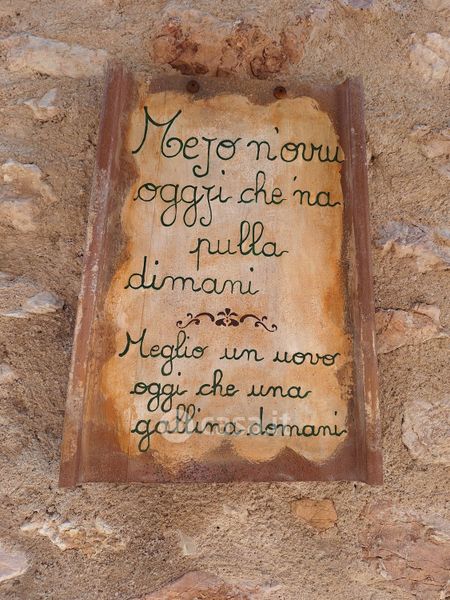 Mejo n'ovu
oggji che 'na
pulla
dimani
Meglio un uovo
oggi che una
gallina domani
casa.it